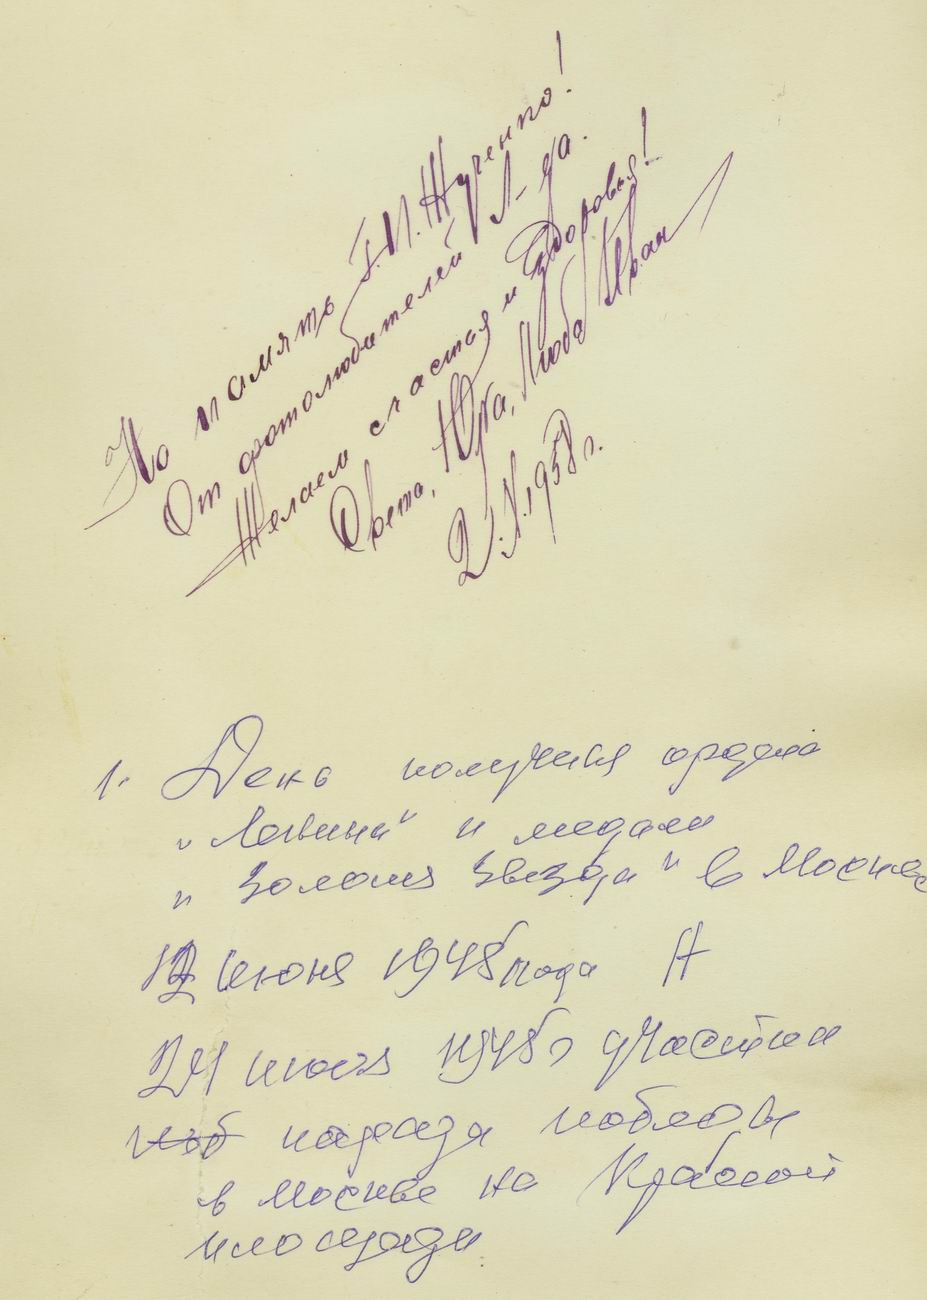 На память Г.П. Жученко!
От фотолюбителей Л-да.
Желаем счастья и здоровья!
Света, Юра, Люба, Иван
2.X.1958 г.
1. День получия ордена
"Ленина" и медали
"Золотая Звезда" в Москве
12 июня 1945 года А
24 июня 1945 г участник
парада победы
в Москве на Красной
площади